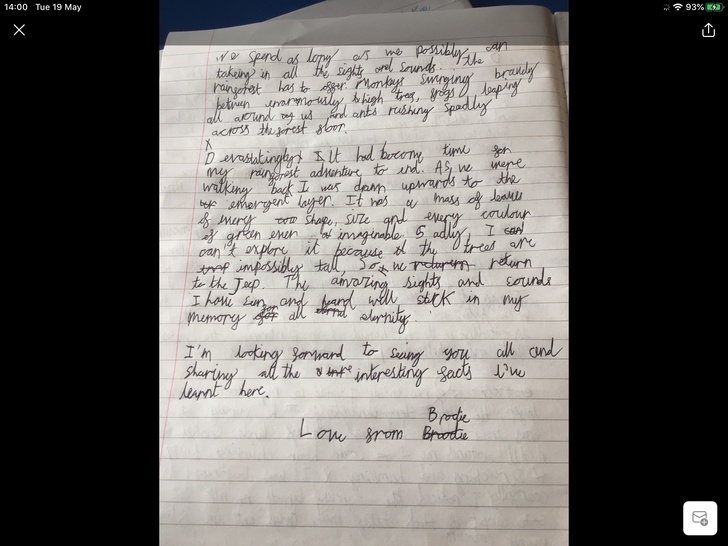 14:00 Tue 19 May
93%
We spend as long as we possibly can
takeing in all the sights and sounds. The
rainforest has to offer. Monkeys swinging bravely
between enarmously high trees, frogs leaping
all around us and ants rushing speadly
across the forest floor.
Devastatingly, It had become time for
my rainforest adventure to end. As, we were
walking back I was drawn upwards to the
emergent layer. It was a mass of leaves
of every shape, size and every coulour
of green even imaginable. Sadly, I
can't explore it because the trees are
impossibly tall, So, we return
to the Jeep. The amazing sights and sounds
I have seen and heard will stick in my
memory for all eternity.
I'm looking forward to seeing you all and
sharing all the interesting facts I've
learnt here.
Brodie
Love from Broodie